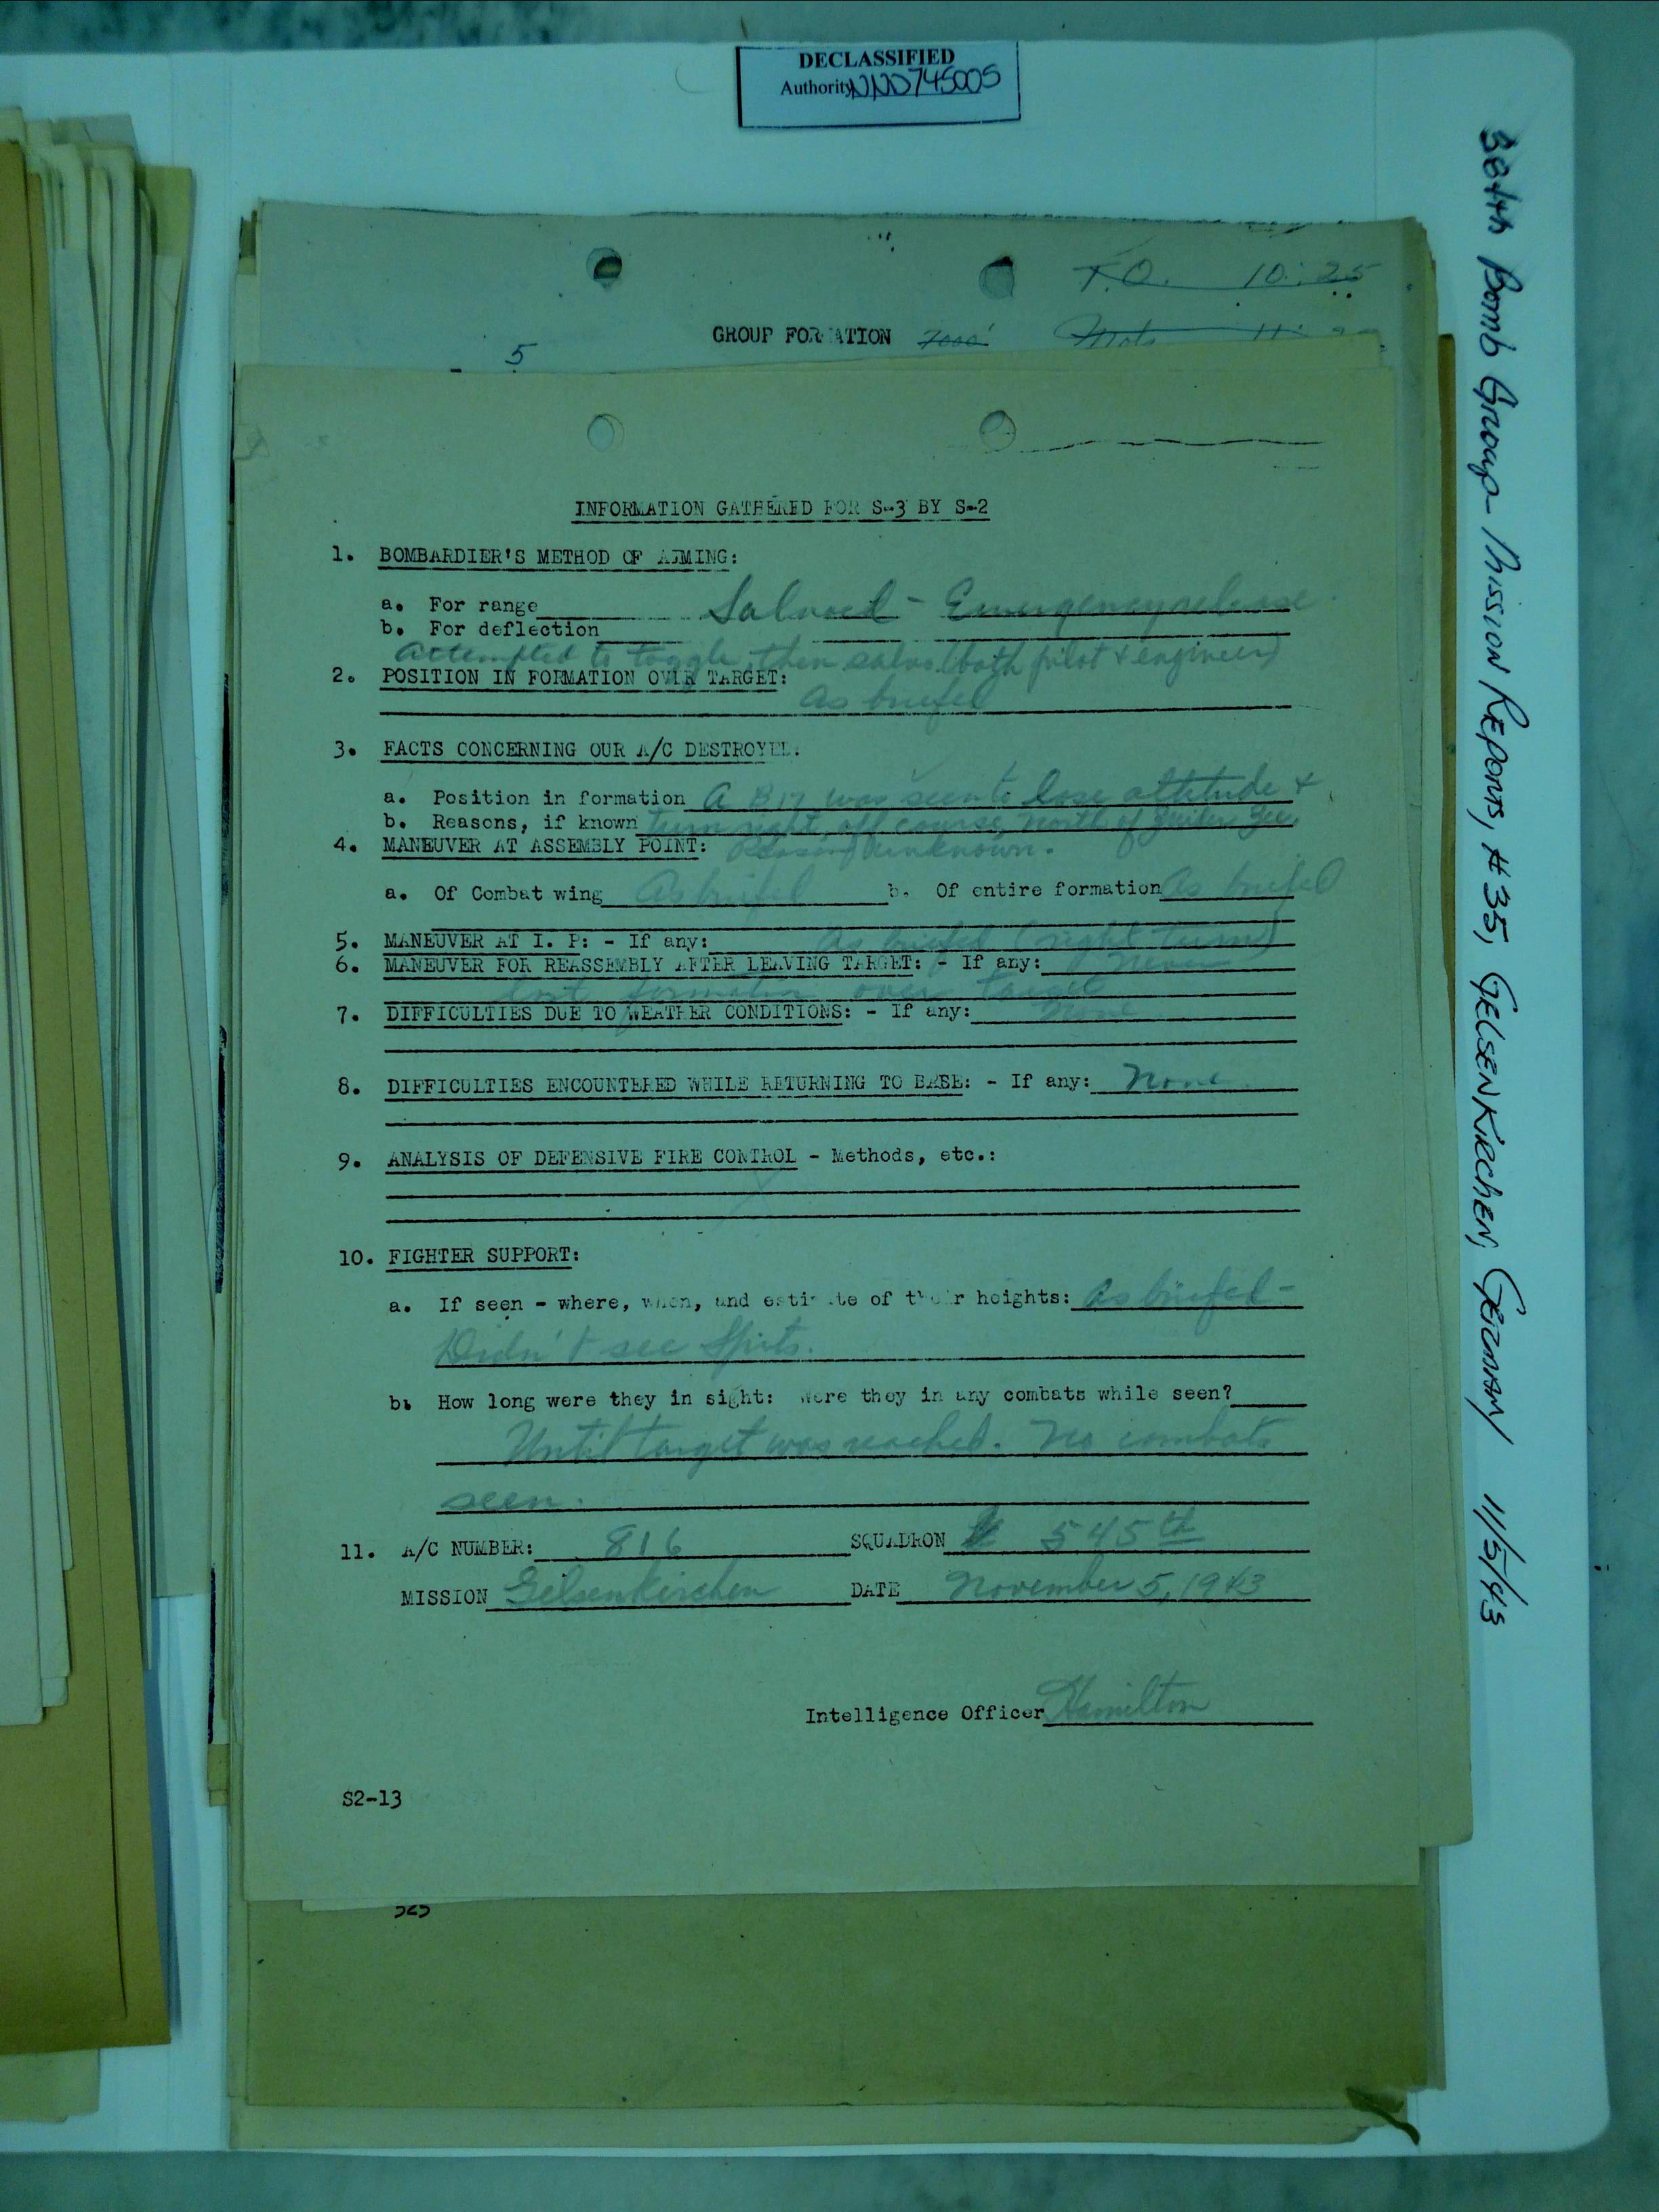 DECLASSIFIED
Authority NND745005
384th Bomb Group Mission Reports, #35, Gelsenkirchen, Germany 11/5/43
T.O. 10:25
GROUP FORMATION 7000'
5
INFORMATION GATHERED FOR S-3 BY S-2
1. BOMBARDIER'S METHOD OF AIMING:
a. For range Salvoed - Emergency release
b. For deflection
Attempted to toggle, then salvo (both pilot + engineer)
2. POSITION IN FORMATION OVER TARGET:
As briefed
3. FACTS CONCERNING OUR A/C DESTROYED.
a. Position in formation A B17 was seen to lose altitude +
b. Reasons, if known turn right, off course, North of Zuider Zee.
4. MANEUVER AT ASSEMBLY POINT: Reason unknown.
a. Of Combat wing As briefed b. Of entire formation As briefed
5. MANEUVER AT I. P: - If any: As briefed (right turn)
6. MANEUVER FOR REASSEMBLY AFTER LEAVING TARGET: - If any: Never
lost formation over target
7. DIFFICULTIES DUE TO WEATHER CONDITIONS: - If any: None
8. DIFFICULTIES ENCOUNTERED WHILE RETURNING TO BASE: - If any: None
9. ANALYSIS OF DEFENSIVE FIRE CONTROL - Methods, etc.:
10. FIGHTER SUPPORT:
a. If seen - where, when, and estimate of their heights: As briefed -
Didn't see Spits.
b. How long were they in sight: Were they in any combats while seen?
Until target was reached. No combats
seen.
11. A/C NUMBER: 816 SQUADRON 545th
MISSION Gelsenkirchen DATE November 5, 1943
Intelligence Officer Hamilton
S2-13